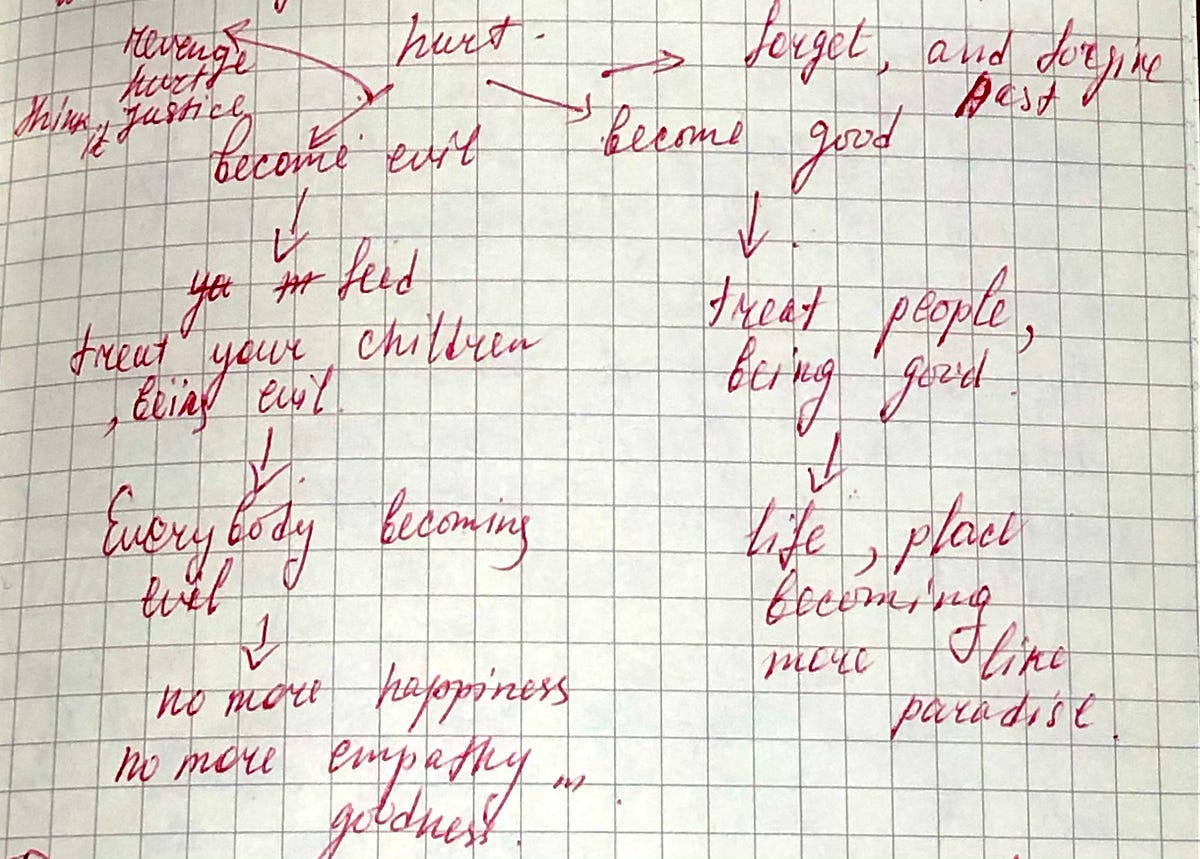 revenge
hurt
think it justice
hurt.
forget, and forgive
past
become evil
become good
feed
treat your children
, being evil.
treat people,
being good.
Everybody becoming
evil
life, place
becoming
more like
paradise.
no more happiness
no more empathy ...
goodness.